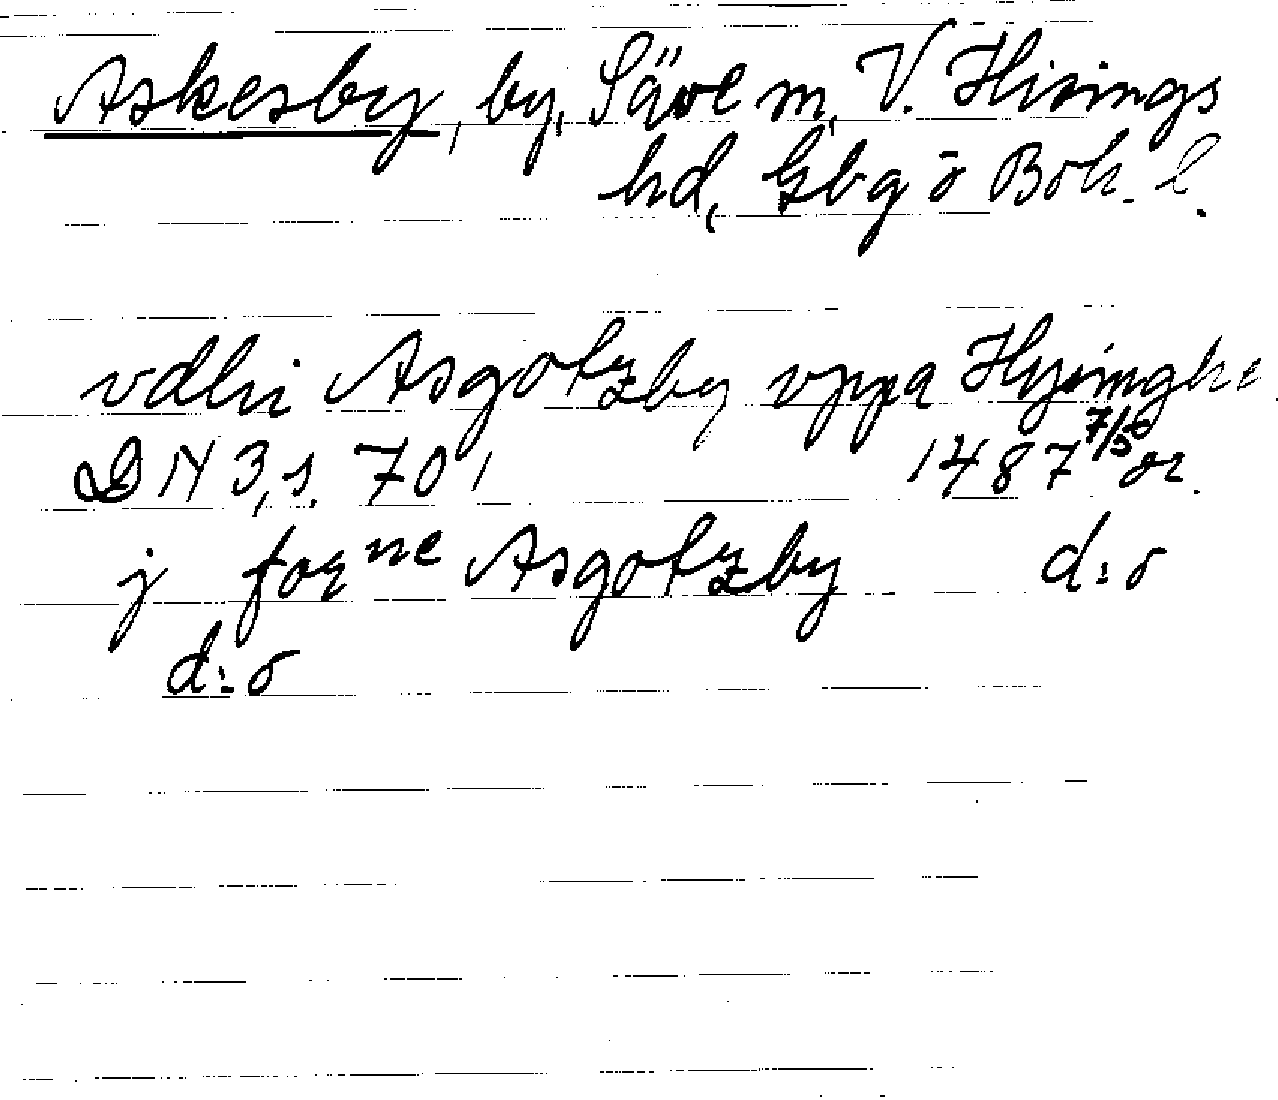 Askesby, by, Säve m, V. Hisings
hd, Gbg o Boh. l.
vdhi Asgotzby vppa Hysinghe
DN 3, s. 701 1487 7/5 or.
j for ne Asgotzby d:o
d:o